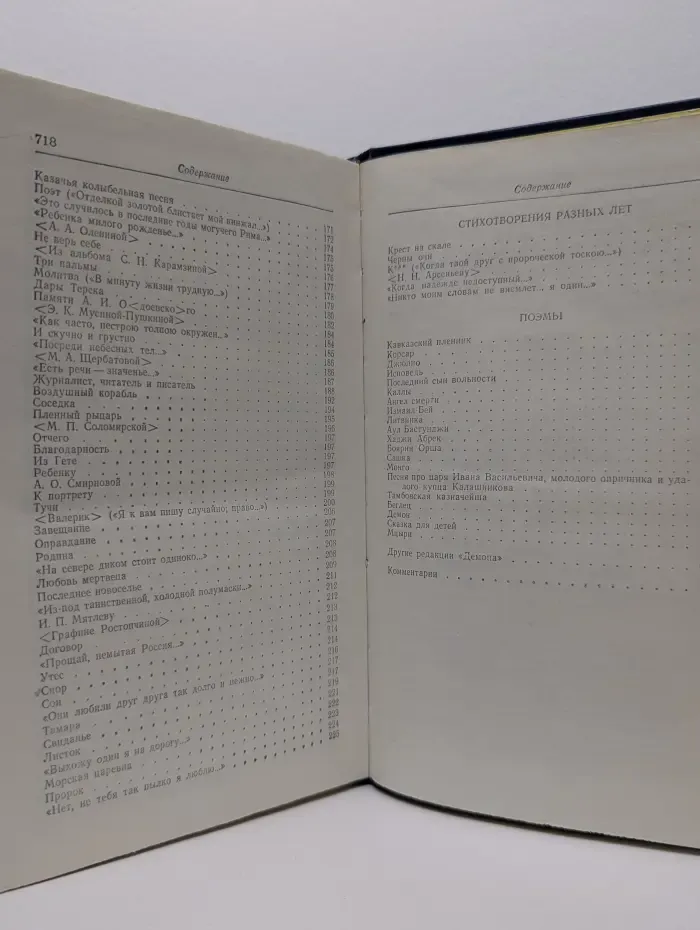 718
Содержание
Казачья колыбельная песня
Поэт («Отделкой золотой блистает мой кинжал...») 171
«Это случилось в последние годы могучего Рима...» 172
«Ребенка милого рожденье...» 173
<А. А. Олениной> 174
Не верь себе 175
<Из альбома С. Н. Карамзиной> 176
Три пальмы 176
Молитва («В минуту жизни трудную...») 177
Дары Терека 178
Памяти А. И. О<доевско>го 179
<Э. К. Мусиной-Пушкиной> 180
«Как часто, пестрою толпою окружен...» 182
И скучно и грустно 184
«Посреди небесных тел...» 184
<М. А. Щербатовой> 185
«Есть речи — значенье...» 186
Журналист, читатель и писатель 186
Воздушный корабль 187
Соседка 188
Пленный рыцарь 192
<М. П. Соломирской> 194
Отчего 195
Благодарность 196
Из Гете 197
Ребенку 197
А. О. Смирновой 197
К портрету 198
Тучи 199
<Валерик> («Я к вам пишу случайно; право...») 199
Завещание 200
Оправдание 206
Родина 207
«На севере диком стоит одиноко...» 207
Любовь мертвеца 208
Последнее новоселье 208
«Из-под таинственной, холодной полумаски...» 209
И. П. Мятлеву 211
<Графине Ростопчиной> 212
Договор 212
«Прощай, немытая Россия...» 213
Утес 213
Спор 214
Сон 214
«Они любили друг друга так долго и нежно...» 216
Тамара 217
Свиданье 217
Листок 219
«Выхожу один я на дорогу...» 221
Морская царевна 222
Пророк 223
«Нет, не тебя так пылко я люблю...» 224
225
Содержание
СТИХОТВОРЕНИЯ РАЗНЫХ ЛЕТ
Крест на скале
Черны очи
К*** («Когда твой друг с пророческой тоскою...»)
<Н. И. Арсеньеву>
«Когда надежде недоступный...»
«Никто моим словам не внемлет... я один...»
ПОЭМЫ
Кавказский пленник
Корсар
Джюлио
Исповедь
Последний сын вольности
Каллы
Ангел смерти
Измаил-Бей
Литвинка
Аул Бастунджи
Хаджи Абрек
Боярин Орша
Сашка
Монго
Песня про царя Ивана Васильевича, молодого опричника и уда-
лого купца Калашникова
Тамбовская казначейша
Беглец
Демон
Сказка для детей
Мцыри
Другие редакции «Демона»
Комментарии